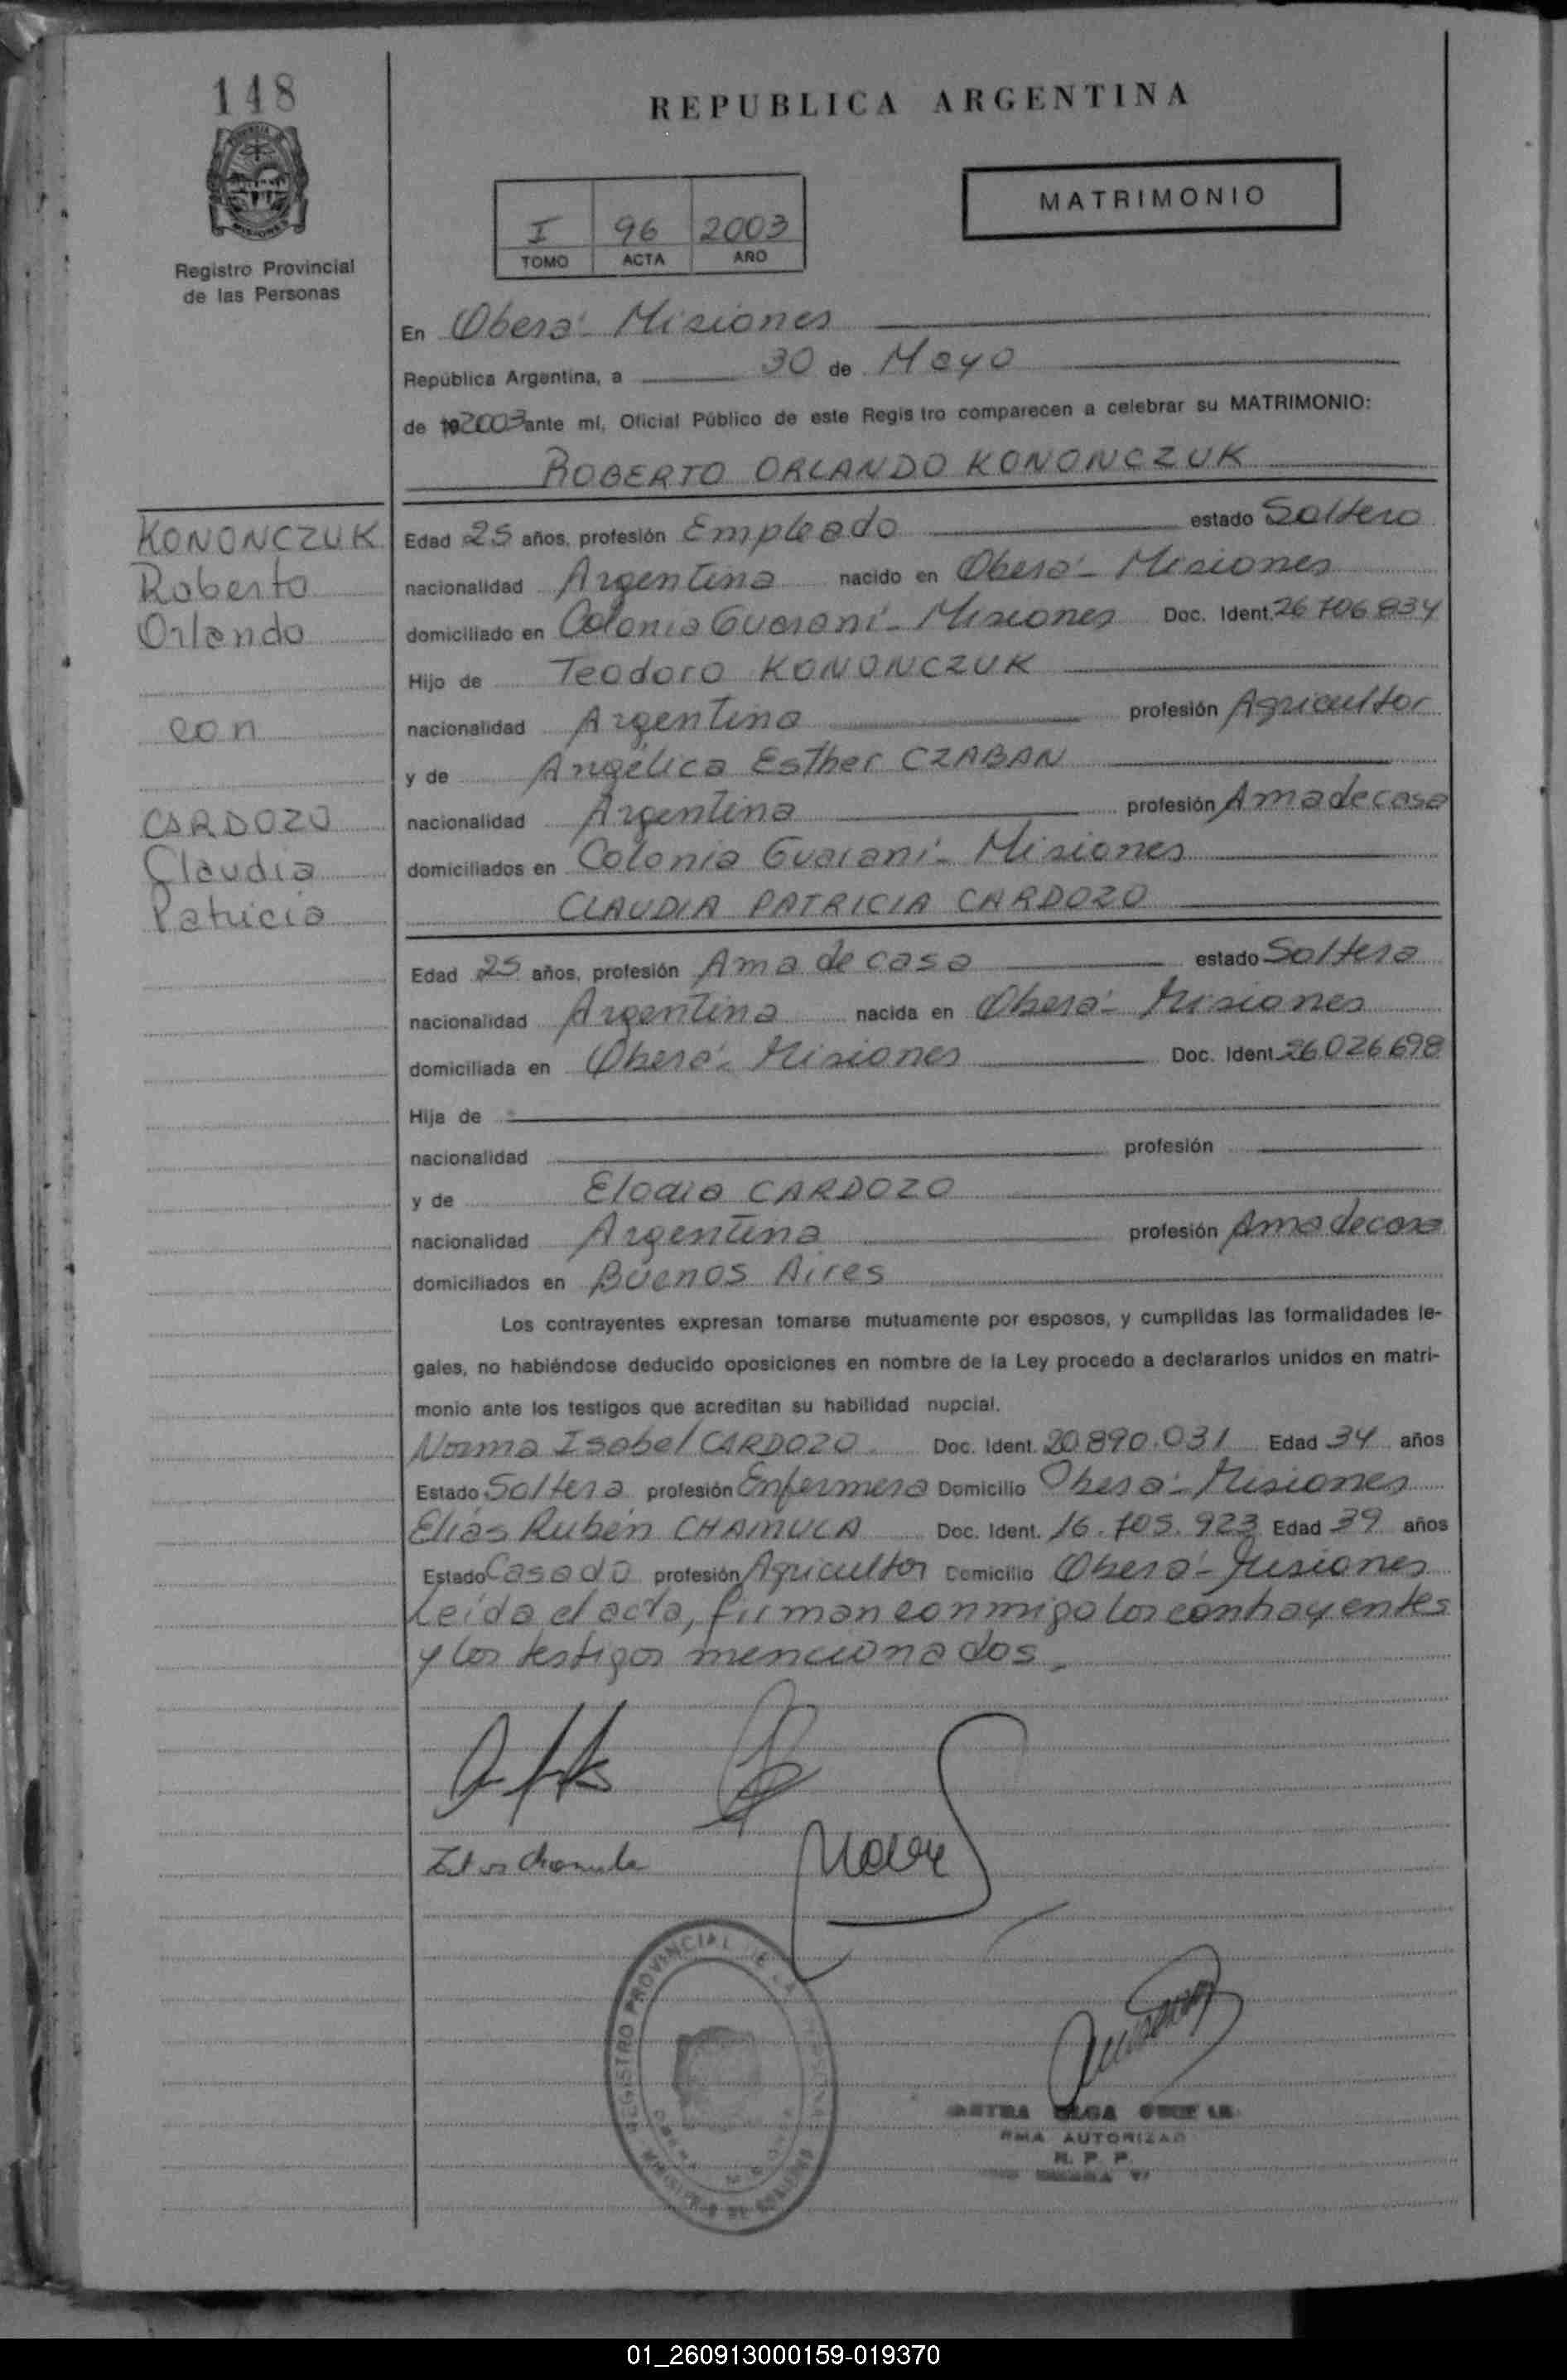 148
REPUBLICA ARGENTINA
MATRIMONIO
I 96 2003
TOMO ACTA AÑO
Registro Provincial
de las Personas
En Oberá - Misiones
República Argentina, a 30 de Mayo
de 192003 ante mí, Oficial Público de este Regis tro comparecen a celebrar su MATRIMONIO:
ROBERTO ORLANDO KONONCZUK
KONONCZUK
Roberto
Orlando
con
CARDOZO
Claudia
Patricia
Edad 25 años, profesión Empleado estado Soltero
nacionalidad Argentina nacido en Oberá - Misiones
domiciliado en Colonia Guaraní - Misiones Doc. Ident. 26.706.834
Hijo de Teodoro KONONCZUK
nacionalidad Argentina profesión Agricultor
y de Angélica Esther CZABAN
nacionalidad Argentina profesión Ama de casa
domiciliados en Colonia Guaraní - Misiones
CLAUDIA PATRICIA CARDOZO
Edad 25 años, profesión Ama de casa estado Soltera
nacionalidad Argentina nacida en Oberá - Misiones
domiciliada en Oberá - Misiones Doc. Ident. 26.026.698
Hija de
nacionalidad profesión
y de Elodia CARDOZO
nacionalidad Argentina profesión Ama de casa
domiciliados en Buenos Aires
Los contrayentes expresan tomarse mutuamente por esposos, y cumplidas las formalidades le-
gales, no habiéndose deducido oposiciones en nombre de la Ley procedo a declararlos unidos en matri-
monio ante los testigos que acreditan su habilidad nupcial.
Norma Isabel CARDOZO Doc. Ident. 20.890.031 Edad 34 años
Estado Soltera profesión Enfermera Domicilio Oberá - Misiones
Elías Rubén CHAMULA Doc. Ident. 16.705.923 Edad 39 años
Estado Casado profesión Agricultor Domicilio Oberá - Misiones
Leída el acta, firman conmigo los contrayentes
y los testigos mencionados.
REGISTRO PROVINCIAL DE
OLGA
AUTORIZAD
R. P. P.
01_260913000159-019370